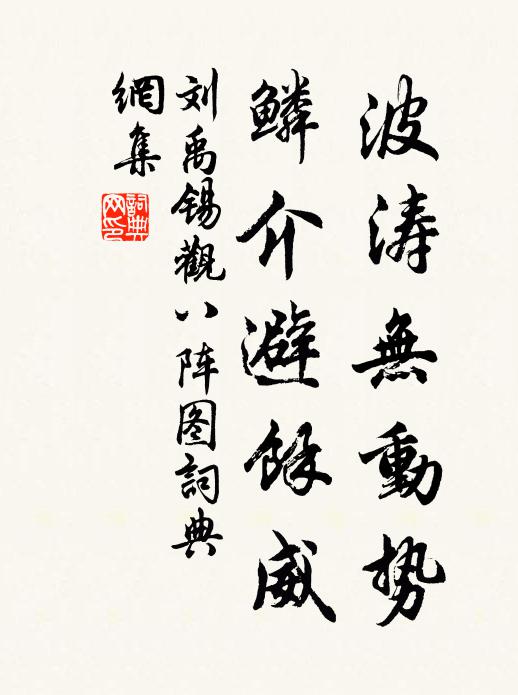 波涛無動势
鳞介避餘威
刘禹锡觀八阵图詞典
網集
詞典
网印